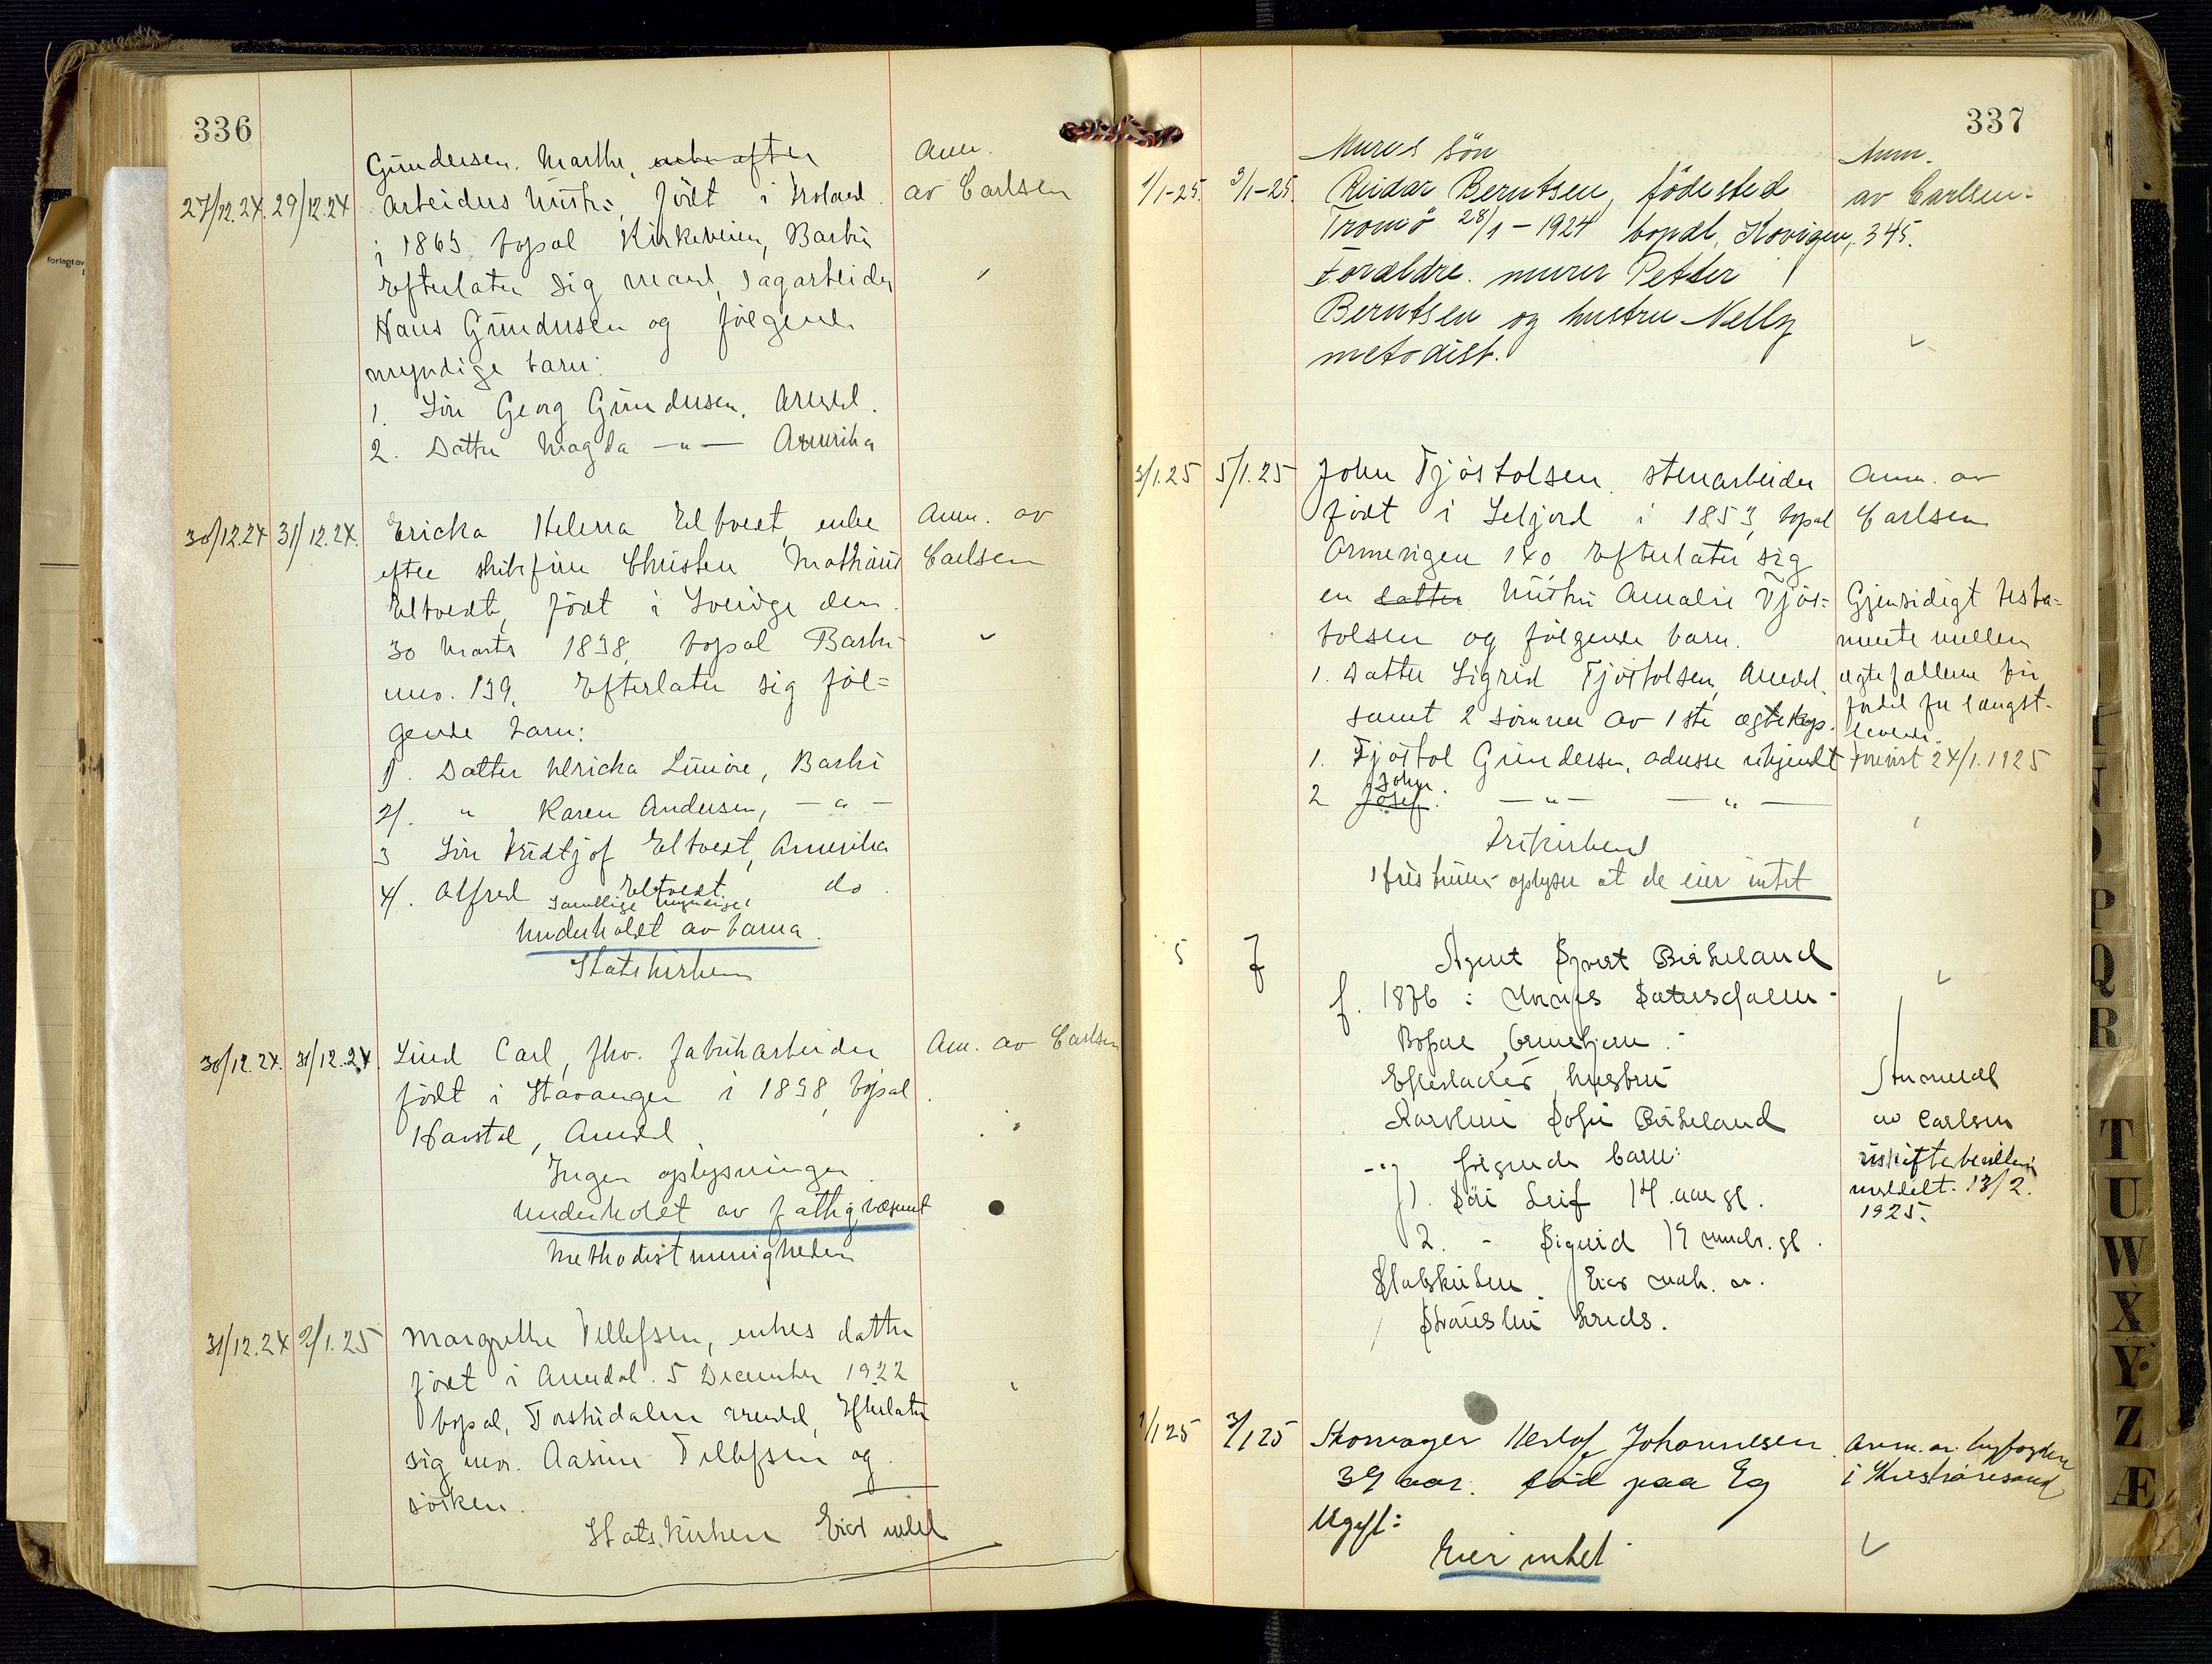 336
Gundersen. Marthe, enke efter Anm.
27/12.24. 29/12.24 arbeiders hustru, født i Froland av Carlsen
i 1865 bopæl Kirkeveien, Barbu
Efterlater sig mand, sagarbeider
Hans Gundersen og følgende
myndige barn:
1. Søn Georg Gundersen, Arendal.
2. Datter Magda —"— Amerika
30/12.24 31/12.24. Ericka Helena Eltvedt, enke Anm. av
efter skibsfører Christen Mathias Carlsen
Eltvedt, født i Sverige den
30 marts 1838, bopæl Barbu
mno. 139. Efterlater sig føl=
gende barn:
1/. Datter Ulricka , Barbu
2/. " Karen Andersen, —"—
3 Søn Fridtjof Eltvedt, Amerika
4/. Alfred Eltvedt do.
Samtlige myndige
Underholdt av barna.
Statskirken
30/12.24. 31/12.24. Lind Carl, fhv. fabrikarbeider Anm. av Carlsen
født i Stavanger i 1838, bopæl
Havstad, Arendal
Ingen oplysninger
Underholdt av fattigvæsenet
Methodistmenigheden
31/12.24 2/1.25 Margrethe Tellefsen, enkes datter
født i Arendal 5 December 1922
bopæl, Torskedalen Arendal, Efterlater
sig mor. Aasine Tellefsen og
søsken.
Statskirken Eier intet
337
Murers søn Anm.
1/1-25. 3/1-25. Reidar Berntsen, fødested av Carlsen.
Tromø 28/1-1924 bopæl, Kovigen, 345.
Forældre. murer Petter
Berntsen og hustru Nelly
metodist.
3/1.25 5/1.25 John Tjøstolsen. stenarbeider Anm. av
født i Seljord i 1853, bopæl Carlsen
140 Efterlater sig
en datter hustru Amalie Tjøs= Gjensidigt testa=
tolsen og følgende barn. mente mellem
1. Datter Sigrid Tjøstolsen, Arendal ægtefællerne
samt 2 sønner av 1ste ægteskap. fordel for længst-
levende.
1. Tjøstol Gundersen, adresse ukjendt Forevist 24/1.1925
John
2 Josef. —"— —"—
Frikirken
hustruen oplyser at de eier intet
5 7 Agent Sjvert Birkeland
f. 1876 :
Bopæl
Efterlader hustru Anmeldt
Karoline Sofie Birkeland av Carlsen
og følgende barn: uskiftebevilling
1. Søn Leif 14 aar gl. meddelt 13/2.
2. - Sigurd 19 gl. 1925.
Statskirken. Eier
.
1/1 25 3/1 25 Skomager Herlof Johannesen. Anm. av byfogden
39 aar. født paa Eg i Kristiansand
Ugift:
Eier intet
T
U
W
X
Y
Z
Æ
P
Q
R